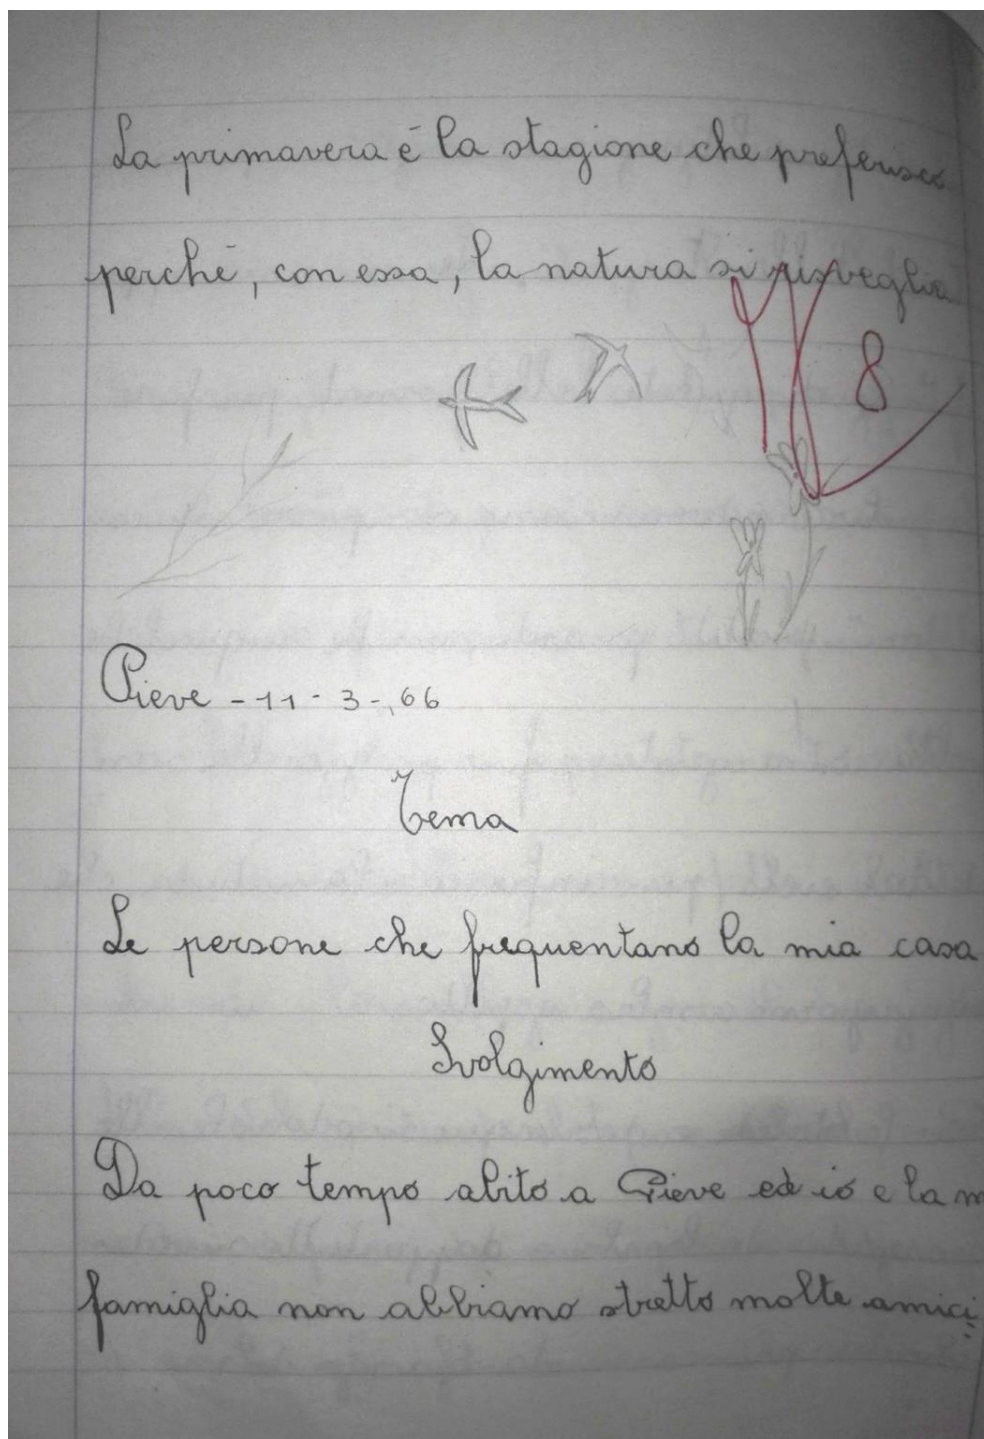 La primavera é la stagione che preferisco
perché, con essa, la natura si risveglia
8
Pieve - 11 - 3 -, 66
Tema
Le persone che frequentano la mia casa
Svolgimento
Da poco tempo abito a Pieve ed io e la m
famiglia non abbiamo stretto molte amici